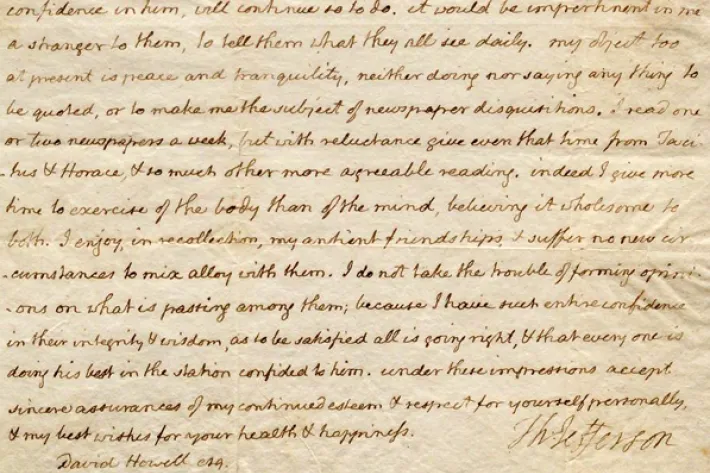 confidence in him, will continue so to do. it would be impertinent in me
a stranger to them, to tell them what they all see daily. my object too
at present is peace and tranquility, neither doing nor saying any thing to
be quoted, or to make me the subject of newspaper disquisitions. I read one
or two newspapers a week, but with reluctance give even that time from Taci-
-tus & Horace, & so much other more agreeable reading. indeed I give more
time to exercise of the body than of the mind, believing it wholesome to
both. I enjoy, in recollection, my antient friendships, & suffer no new cir-
-cumstances to mix alloy with them. I do not take the trouble of forming opini-
-ons on what is passing among them; because I have such entire confidence
in their integrity & wisdom, as to be satisfied all is going right, & that every one is
doing his best in the station confided to him. under these impressions accept
sincere assurances of my continued esteem & respect for yourself personally,
& my best wishes for your health & happiness.
Th: Jefferson
David Howell esq.